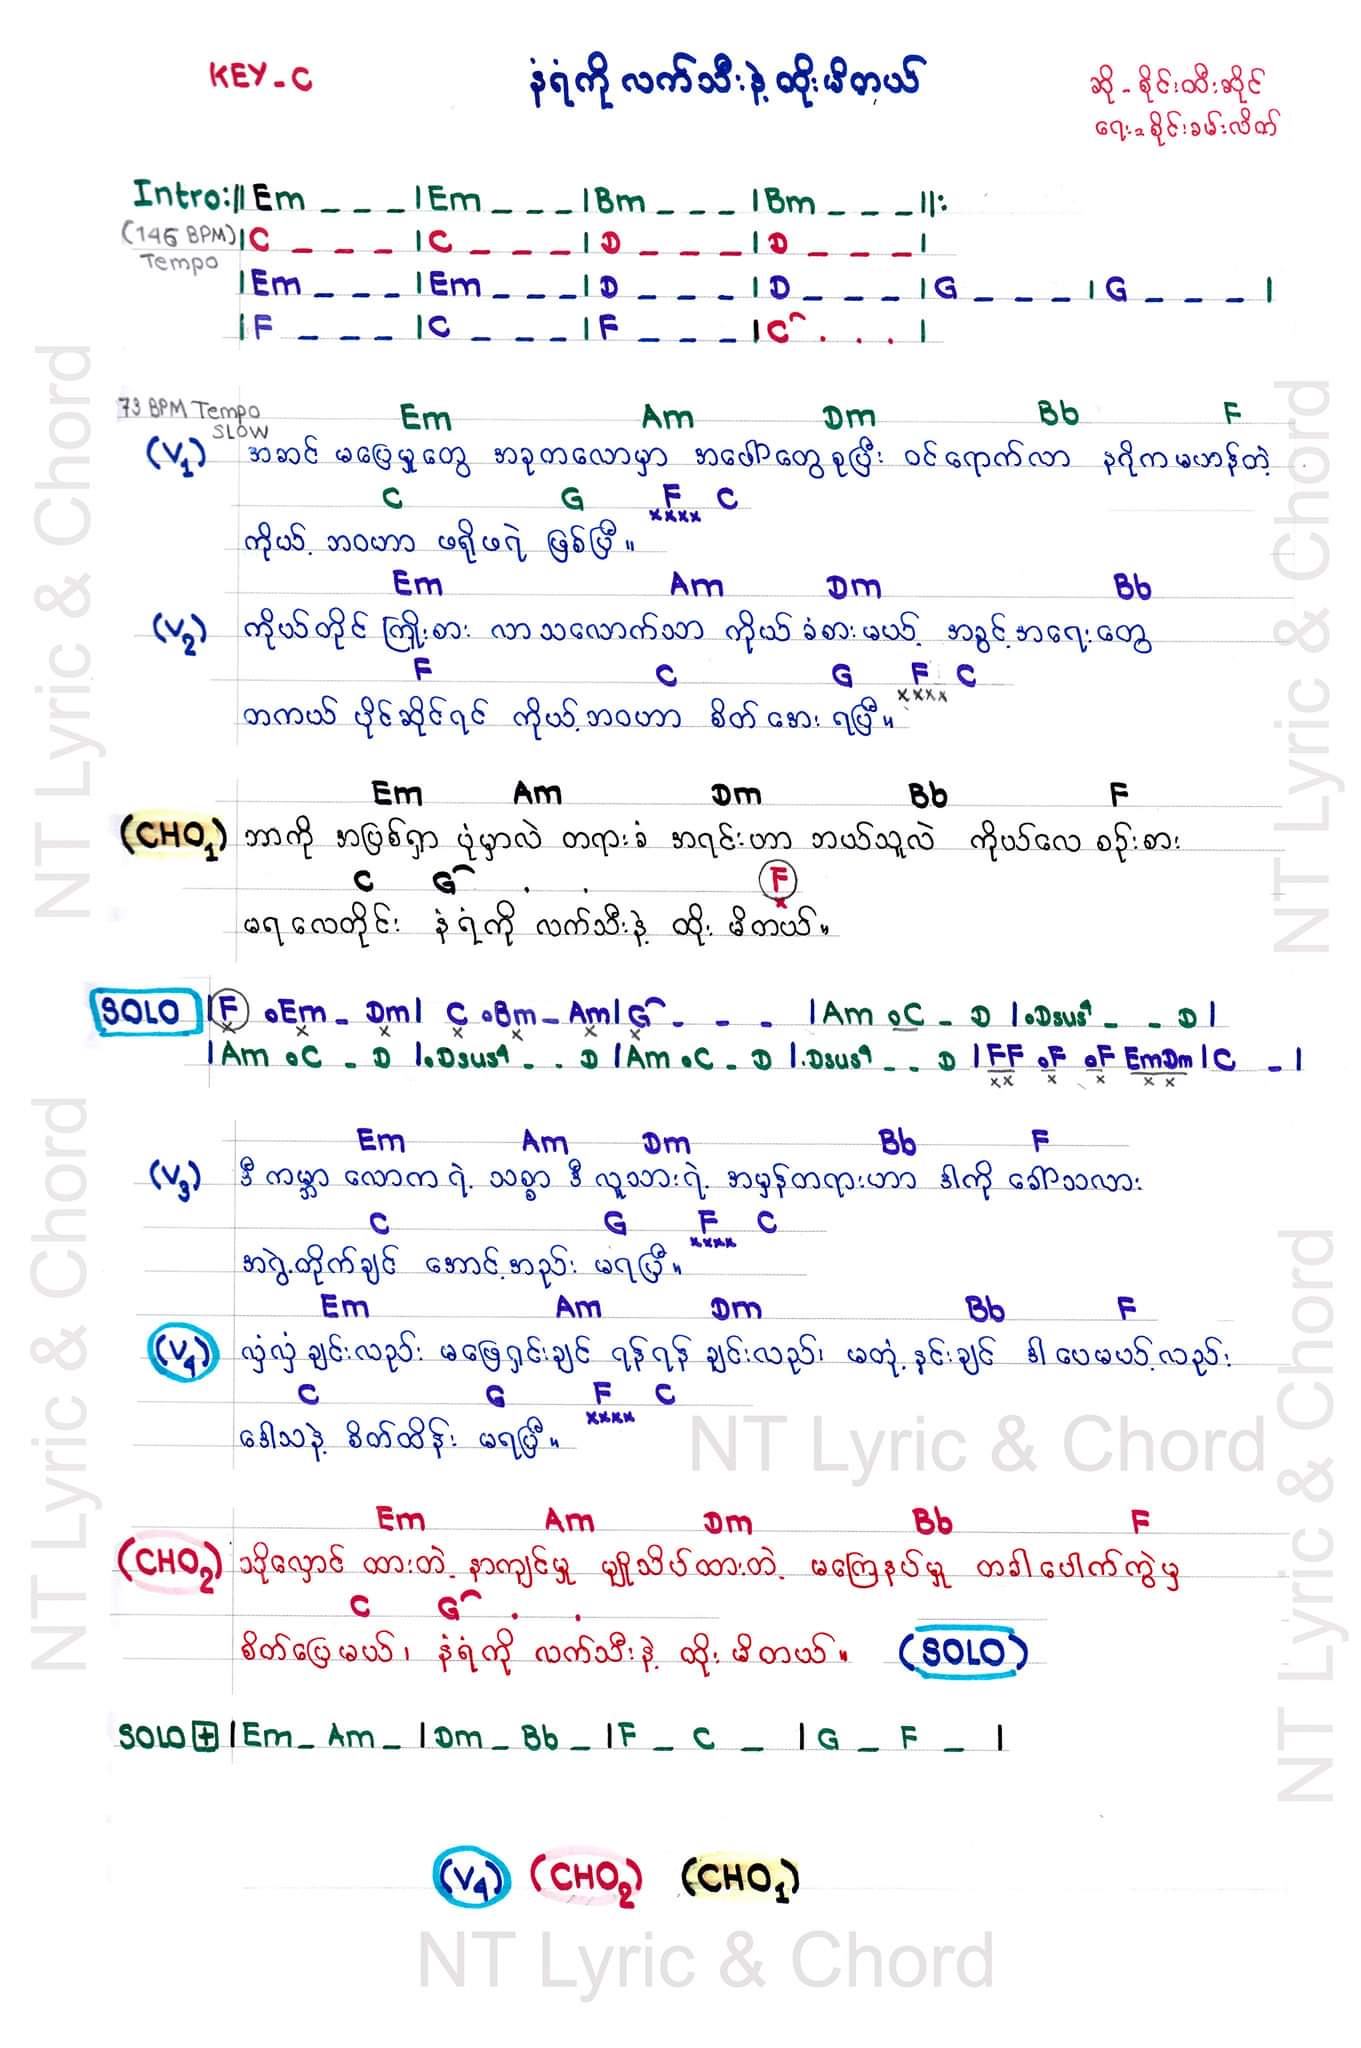 KEY - C
နံရံကို လက်သီးနဲ့ ထိုးမိတယ်
ဆို - စိုင်းထီးဆိုင်
ရေး = စိုင်းခမ်းလိတ်
Intro:|| Em _ _ _ | Em _ _ _ | Bm _ _ _ | Bm _ _ _ ||:
(146 BPM) | C _ _ _ | C _ _ _ | D _ _ _ | D _ _ _ |
Tempo
| Em _ _ _ | Em _ _ _ | D _ _ _ | D _ _ _ | G _ _ _ | G _ _ _ |
| F _ _ _ | C _ _ _ | F _ _ _ | C^ . . . |
73 BPM Tempo
SLOW
Em Am Dm Bb F
(V1) အဆင် မပြေမှုတွေ အခုကလောမှာ အပေါ်တွေစုပြီး ဝင်ရောက်လာ နဂိုကမဟန်တဲ့
C G F C
xxxx
ကိုယ့် ဘဝဟာ ဖရိုဖရဲ ဖြစ်ပြီ။
Em Am Dm Bb
(V2) ကိုယ်တိုင် ကြိုးစား လာသလောက်သာ ကိုယ်ခံစားမယ့် အခွင့်အရေးတွေ
F C G F C
xxxx
တကယ် ပိုင်ဆိုင်ရင် ကိုယ့်ဘဝဟာ စိတ်အေးရပြီ။
Em Am Dm Bb F
(CHO1) ဘာကို အပြစ်ရှာ ပုံမှာလဲ တရားခံ အရင်းဟာ ဘယ်သူလဲ ကိုယ်လေ စဉ်းစား
C G^ . . F
x
မရလေတိုင်း နံရံကို လက်သီးနဲ့ ထိုးမိတယ်။
SOLO | F oEm _ Dm | C oBm _ Am | G^ _ _ _ | Am oC _ D | oDsus4 _ _ D |
x x x x x x x
| Am oC _ D | oDsus4 . . D | Am oC _ D | .Dsus4 _ . D | FF oF oF EmDm | C _ |
xx x x x x
Em Am Dm Bb F
(V3) ဒီကမ္ဘာ လောကရဲ့ သစ္စာ ဒီလူသားရဲ့ အမှန်တရားဟာ ဒါကို ခေါ်သလား
C G F C
xxxx
အရွဲ့တိုက်ချင် အောင့်အည်း မရပြီ။
Em Am Dm Bb F
(V4) လှံလှံ ချင်းလည်း မဖြေရှင်းချင် ရန်ရန် ချင်းလည်း၊ မတုံ့နှင်းချင် ဒါပေမယ့်လည်း
C G F C
xxxx
ဒေါသနဲ့ စိတ်ထိန်း မရပြီ။
Em Am Dm Bb F
(CHO2) သိုလှောင် ထားတဲ့ နာကျင်မှု မျိုသိပ်ထားတဲ့ မကြေနပ်မှု တခါပေါက်ကွဲမှ
C G^ . .
စိတ်ပြေမယ်၊ နံရံကို လက်သီးနဲ့ ထိုးမိတယ်။ (SOLO)
SOLO + | Em _ Am _ | Dm _ Bb _ | F _ C _ | G _ F _ |
(V4) (CHO2) (CHO1)
NT Lyric & Chord
NT Lyric & Chord
NT Lyric & Chord
NT Lyric & Chord
NT Lyric & Chord
NT Lyric & Chord